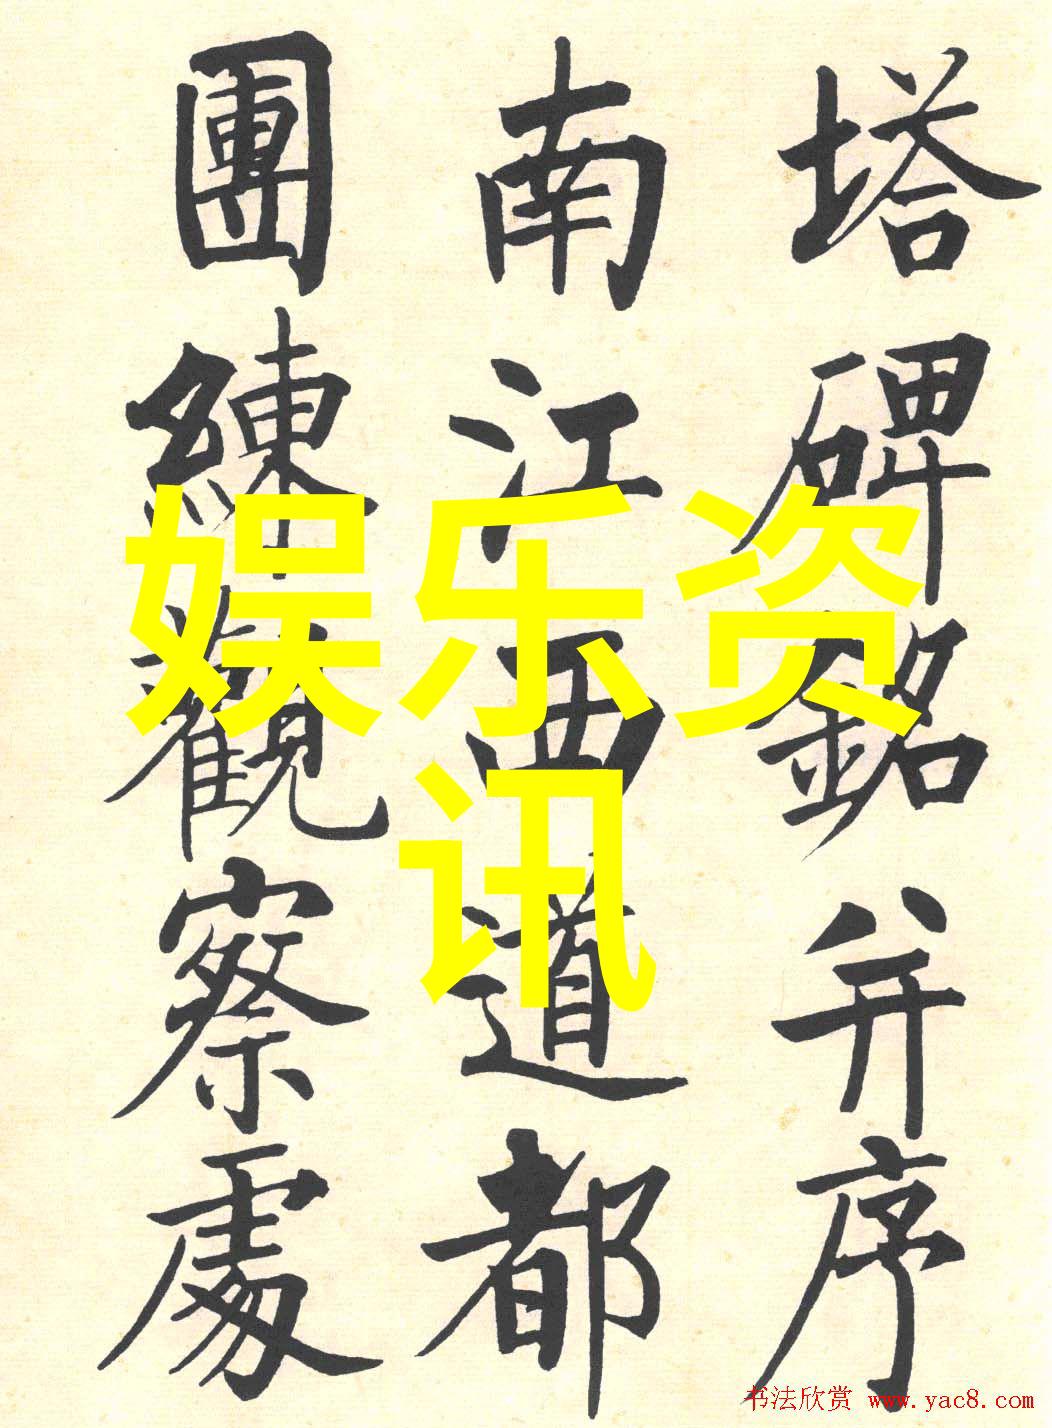 塔碑銘并序
南江西道都
團練觀察處
娱乐资
讯
书法欣赏 www.yac8.com